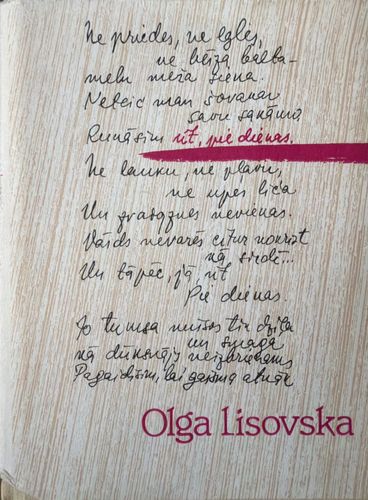 Ne priedes, ne egles,
ne bērza balta-
melu meža siena.
Neteic man šovakar
savu sakāmo,
Runāsim rīt, pie dienas.
Ne lauku, ne pļavu,
ne upes līča
Un gravas nevienas.
Vārds nevarēs citur nokrist
kā sirdī...
Un tāpēc, jā, rīt
Pie dienas.
Jo tumsa mūsos tik dziļa
un smaga
kā dūksnājs neizbrienams
Pagaidīsim, lai gaisma atnāk
Olga Lisovska